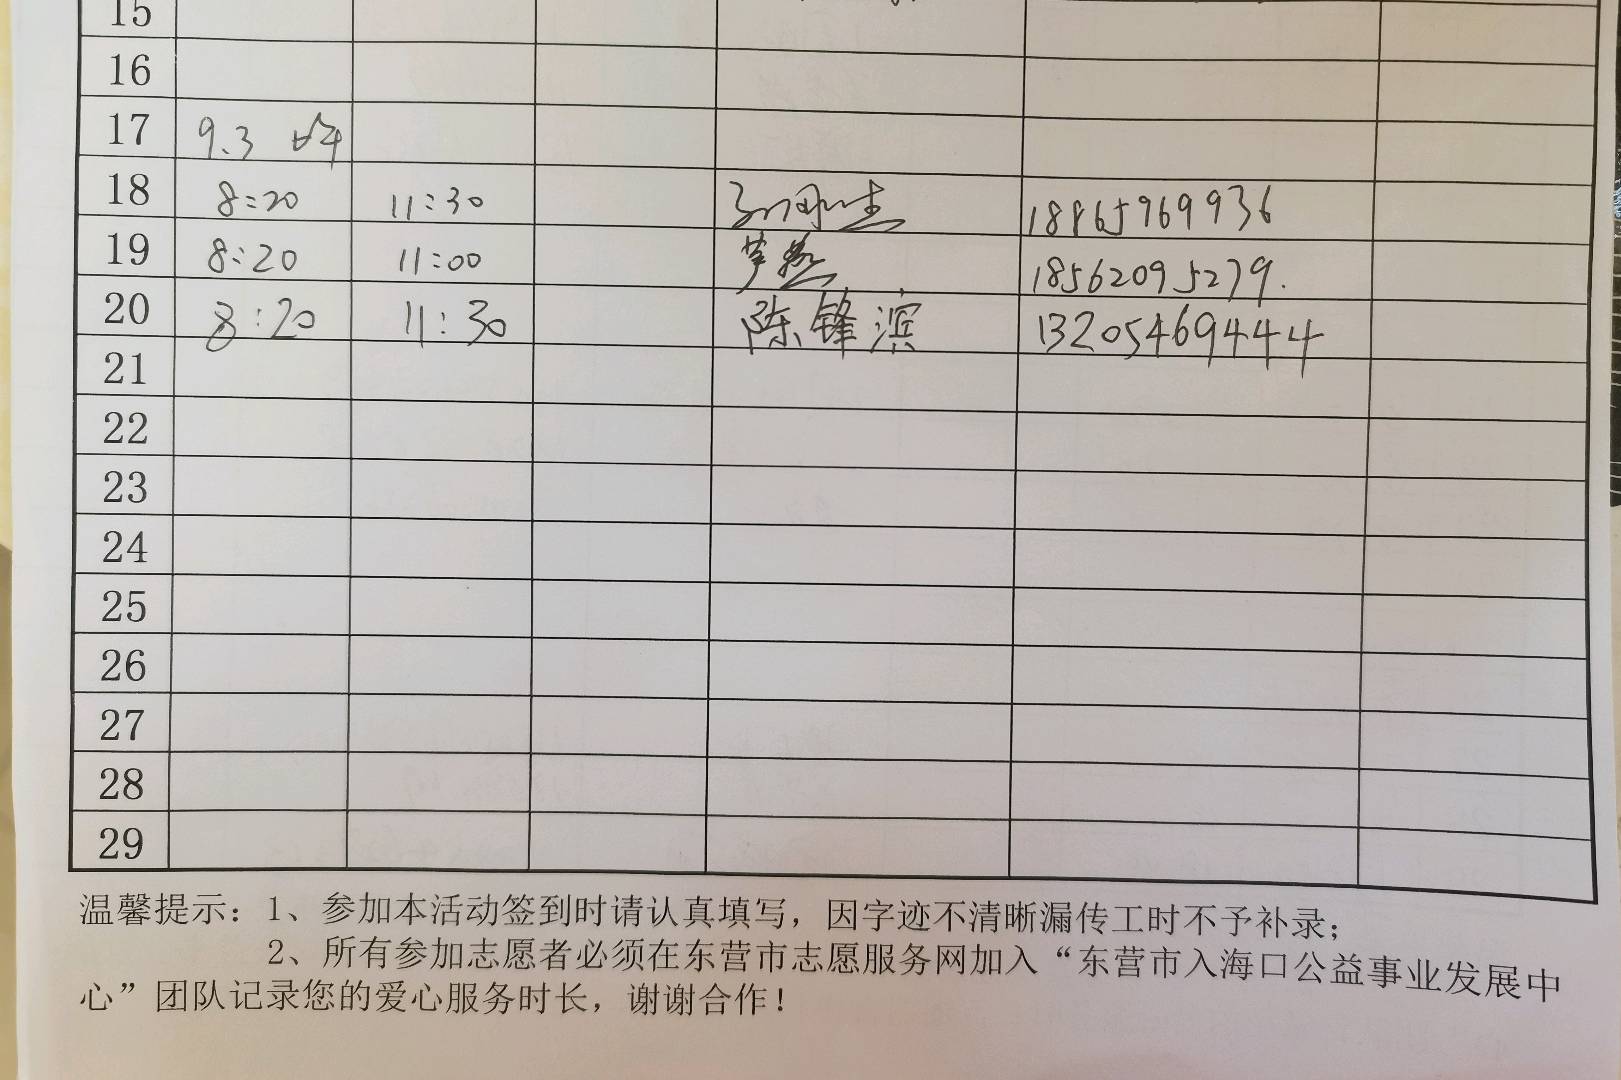 15
16
17 9.3 上午
18 8:20 11:30 18865969936
19 8:20 11:00 18562095279.
20 8:20 11:30 陈锋滨 13205469444
21
22
23
24
25
26
27
28
29
温馨提示：1、参加本活动签到时请认真填写，因字迹不清晰漏传工时不予补录；
2、所有参加志愿者必须在东营市志愿服务网加入“东营市入海口公益事业发展中
心”团队记录您的爱心服务时长，谢谢合作！